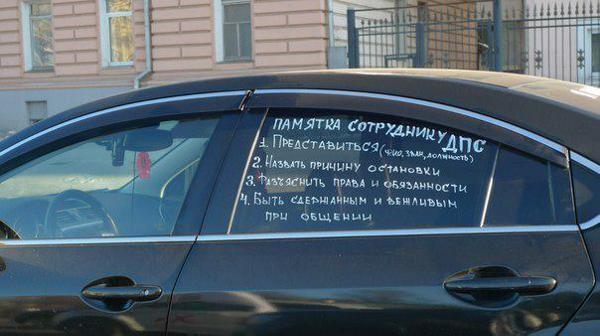 ПАМЯТКА СОТРУДНИКУ ДПС
1. ПРЕДСТАВИТЬСЯ (ФИО, ЗВАН, ДОЛЖНОСТЬ)
2. НАЗВАТЬ ПРИЧИНУ ОСТАНОВКИ
3. РАЗЪЯСНИТЬ ПРАВА И ОБЯЗАННОСТИ
4. БЫТЬ СДЕРЖАННЫМ И ВЕЖЛИВЫМ
ПРИ ОБЩЕНИИ